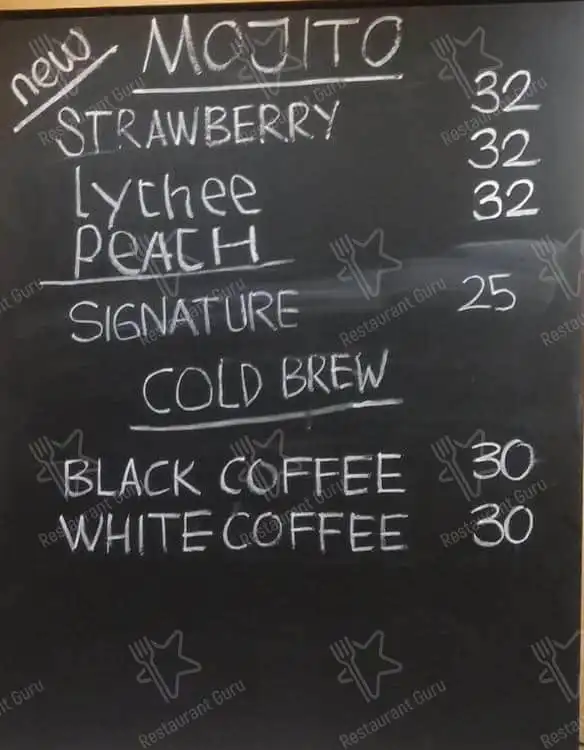 new MOJITO
STRAWBERRY 32
Lychee 32
PEACH 32
SIGNATURE 25
COLD BREW
BLACK COFFEE 30
WHITE COFFEE 30
Restaurant Guru